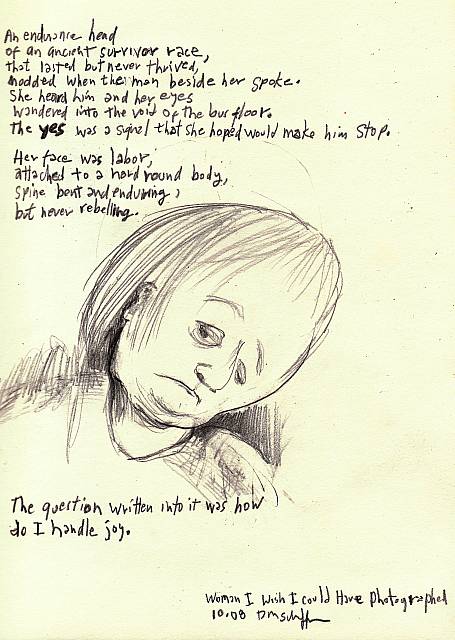 An endurance head
of an ancient survivor race,
that lasted but never thrived,
nodded when the man beside her spoke.
She heard him and her eyes
wandered into the void of the bus floor.
The yes was a signel that she hoped would make him stop.
Her face was labor,
attached to a hard round body,
spine bent and enduring,
but never rebelling.
The question written into it was how
do I handle joy.
Woman I wish I could Have photographed
10.08